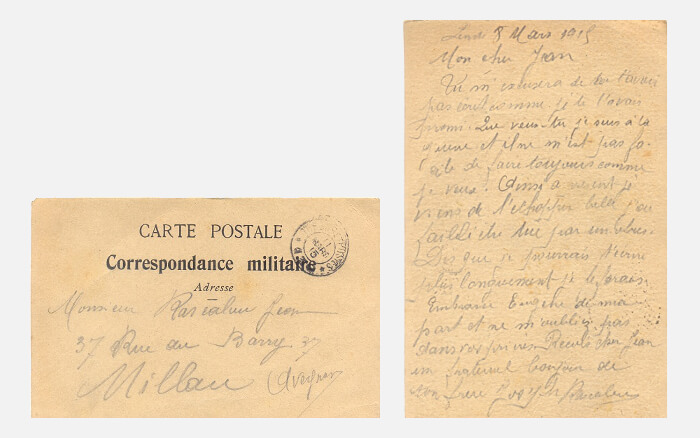 CARTE POSTALE
Correspondance militaire
Adresse
Monsieur Rascalou Jean
37 Rue du Barry 37
Millau (Aveyron)
Lundi 8 Mars 1915
Mon cher Jean
Tu m'excusera de ne t'avoir
pas écrit comme je te l'avais
promi. Que veux-tu je suis à la
guerre et il ne m'est pas fa-
cile de faire toujours comme
je veux. Ainsi à
viens de l'échapper belle j'ai
failli être tué par un obus.
Dès que je pourrais t'écrire
plus longuement je le ferais.
Embrasse Eugène de ma
part et ne m'oubliez pas
dans vos prières. Reçois cher Jean
un fraternel bonjour de
ton frère Joseph Rascalou